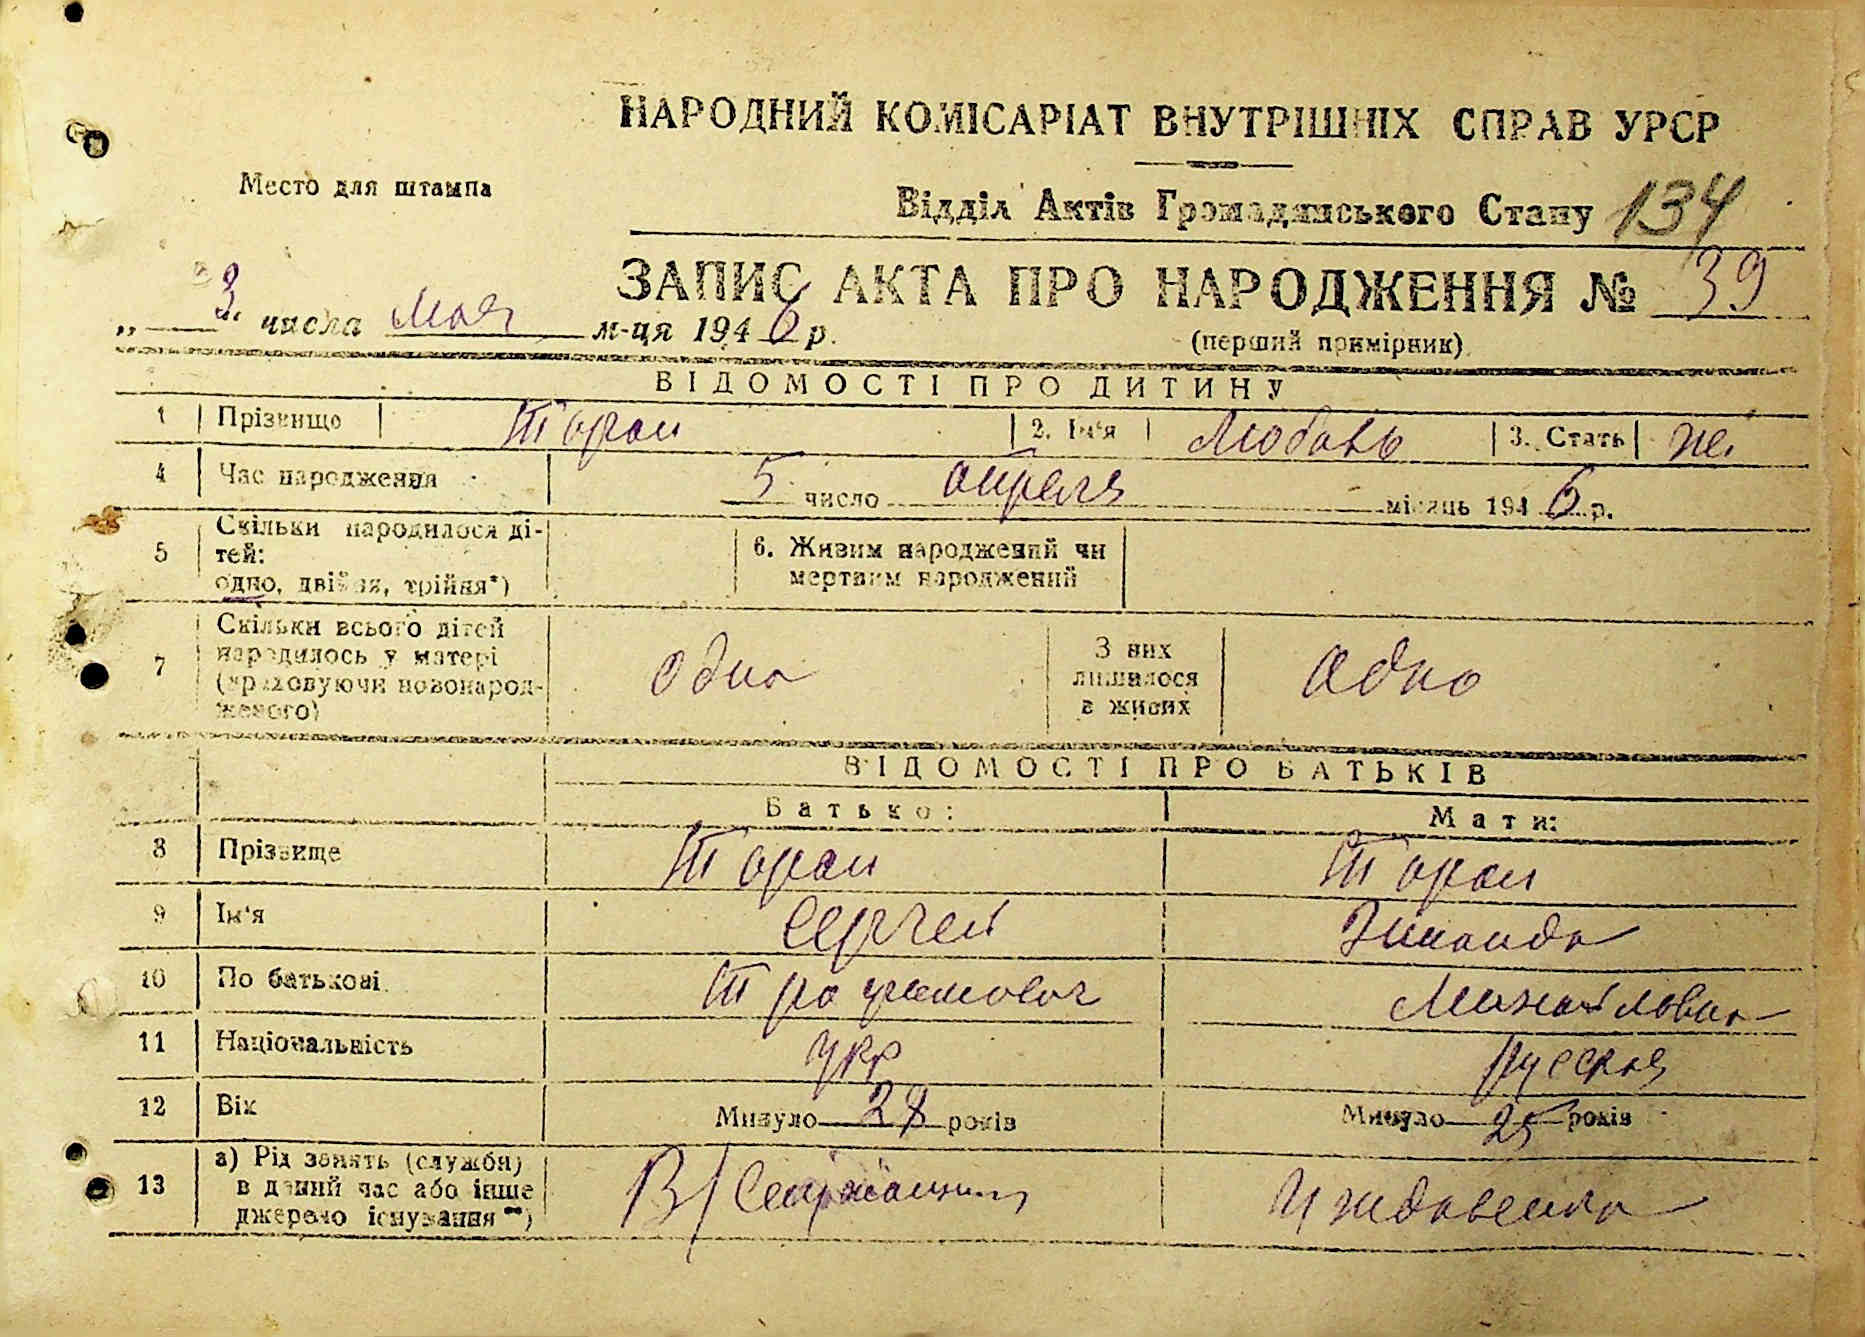 НАРОДНИЙ КОМІСАРІАТ ВНУТРІШНІХ СПРАВ УРСР
Место для штампа
Відділ Актів Громадянського Стану 134
ЗАПИС АКТА ПРО НАРОДЖЕННЯ № 39
„ 3 " числа мая м-ця 194 6 р.
(перший примірник)
ВІДОМОСТІ ПРО ДИТИНУ
1 Прізвище Торан 2. Ім'я Любовь 3. Стать же
4 Час народження 5 число апреля місяць 194 6 р.
5 Скільки народилося ді-
тей:
одно, двійня, трійня*)
6. Живим народжений чи
мертвим народжений
7 Скільки всього дітей
народилось у матері
(враховуючи новонарод-
женого)
одно
З них
лишилося
в живих
одно
ВІДОМОСТІ ПРО БАТЬКІВ
Батько: Мати:
8 Прізвище Торан Торан
9 Ім'я Сергей Зинаида
10 По батькові Трофимович Михайловна
11 Національність укр русская
12 Вік Минуло 28 років Минуло 25 років
13 а) Рід занять (служби)
в даний час або інше
джерело існування **)
Иждивенка